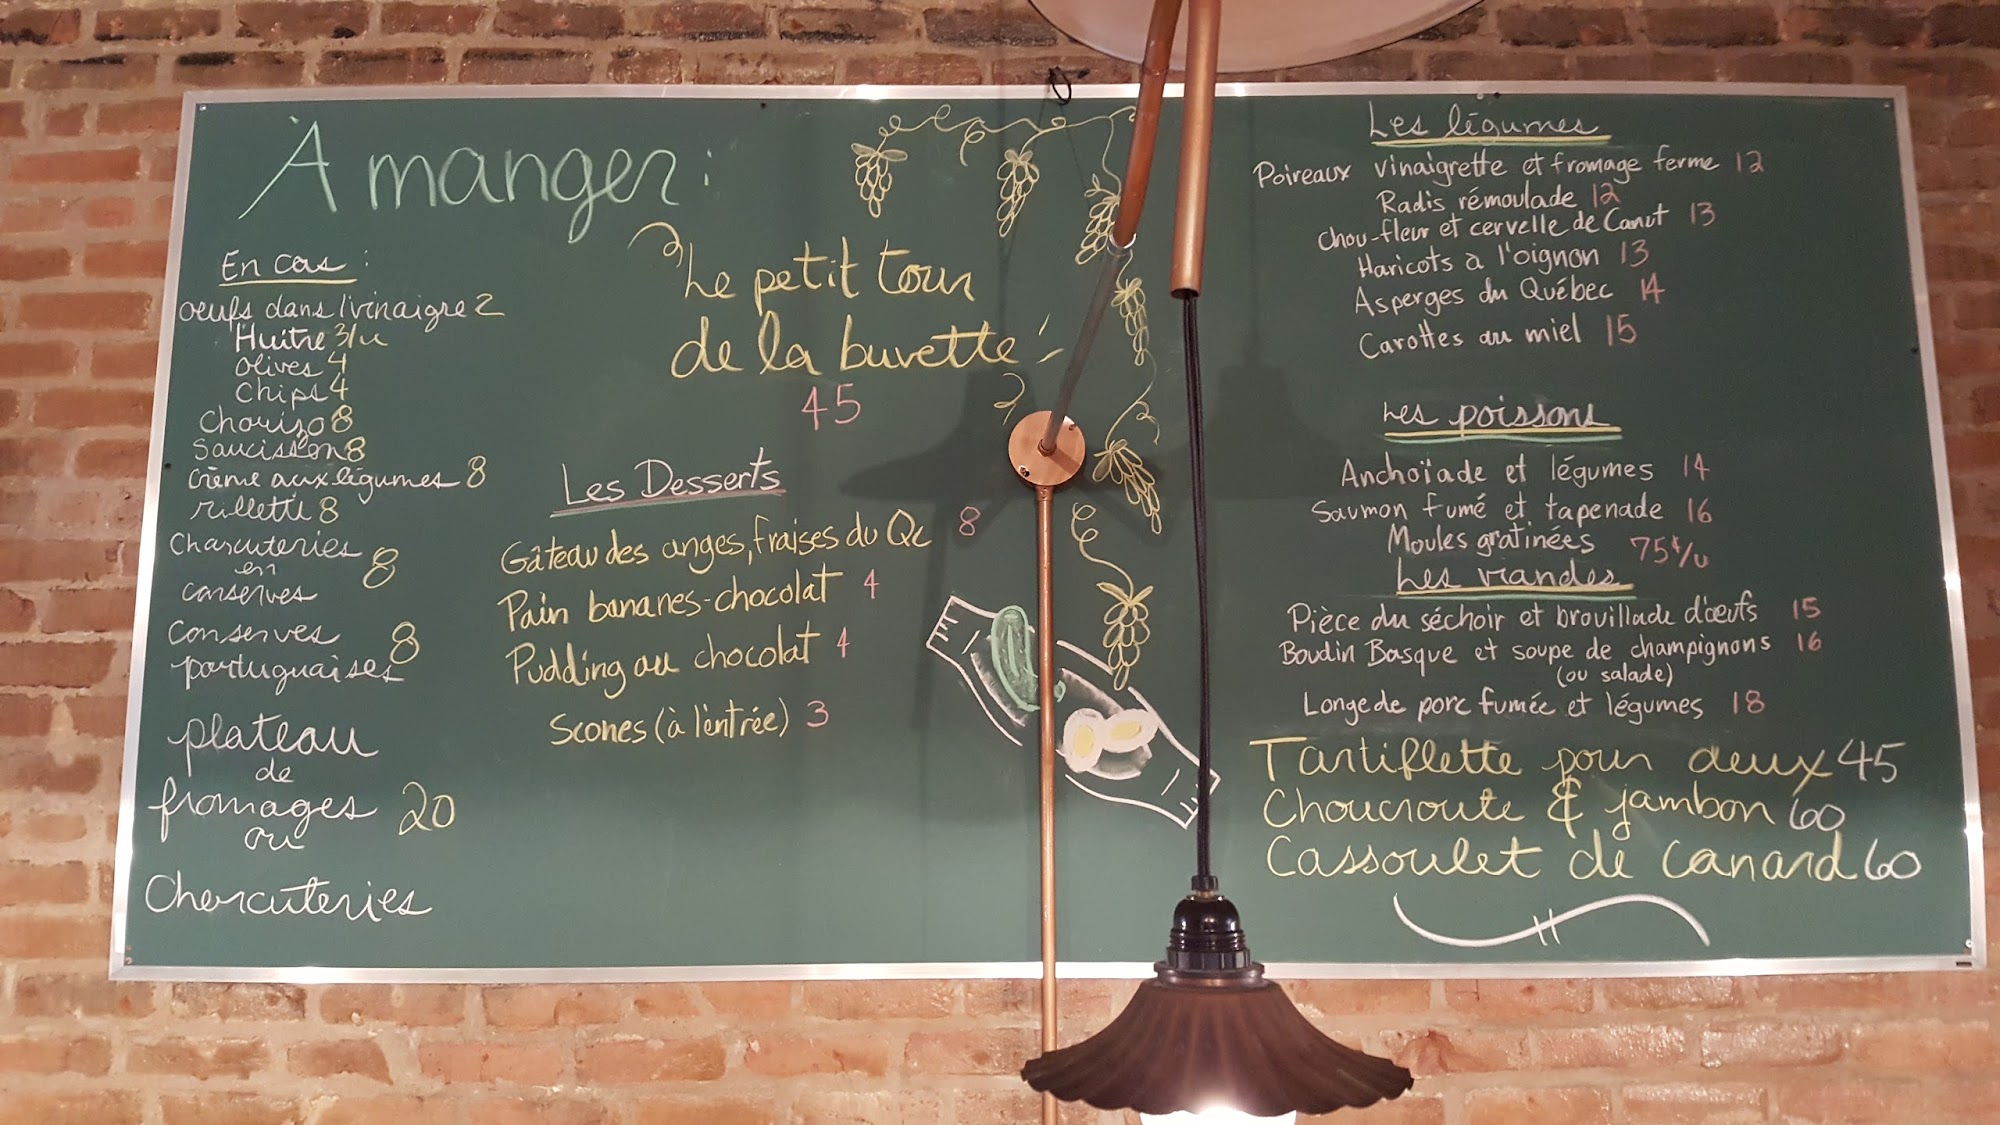 À manger :
En cas :
oeufs dans l'vinaigre 2
Huître 3/u
olives 4
chips 4
Chorizo 8
Saucisson 8
crème aux légumes 8
rillette 8
Charcuteries
en
conserves 8
conserves
portuguaises 8
plateau
de
fromages 20
ou
Charcuteries
Le petit tour
de la buvette !
45
Les Desserts
Gâteau des anges, fraises du Qc 8
Pain bananes-chocolat 4
Pudding au chocolat 4
Scones (à l'entrée) 3
Les légumes
Poireaux vinaigrette et fromage ferme 12
Radis rémoulade 12
Chou-fleur et cervelle de Canut 13
Haricots à l'oignon 13
Asperges du Québec 14
Carottes au miel 15
Les poissons
Anchoïade et légumes 14
Saumon fumé et tapenade 16
Moules gratinées 75¢/u
Les viandes
Pièce du séchoir et brouillade d'œufs 15
Boudin Basque et soupe de champignons 16
(ou salade)
Longe de porc fumée et légumes 18
Tartiflette pour deux 45
Choucroute & jambon 60
Cassoulet de canard 60